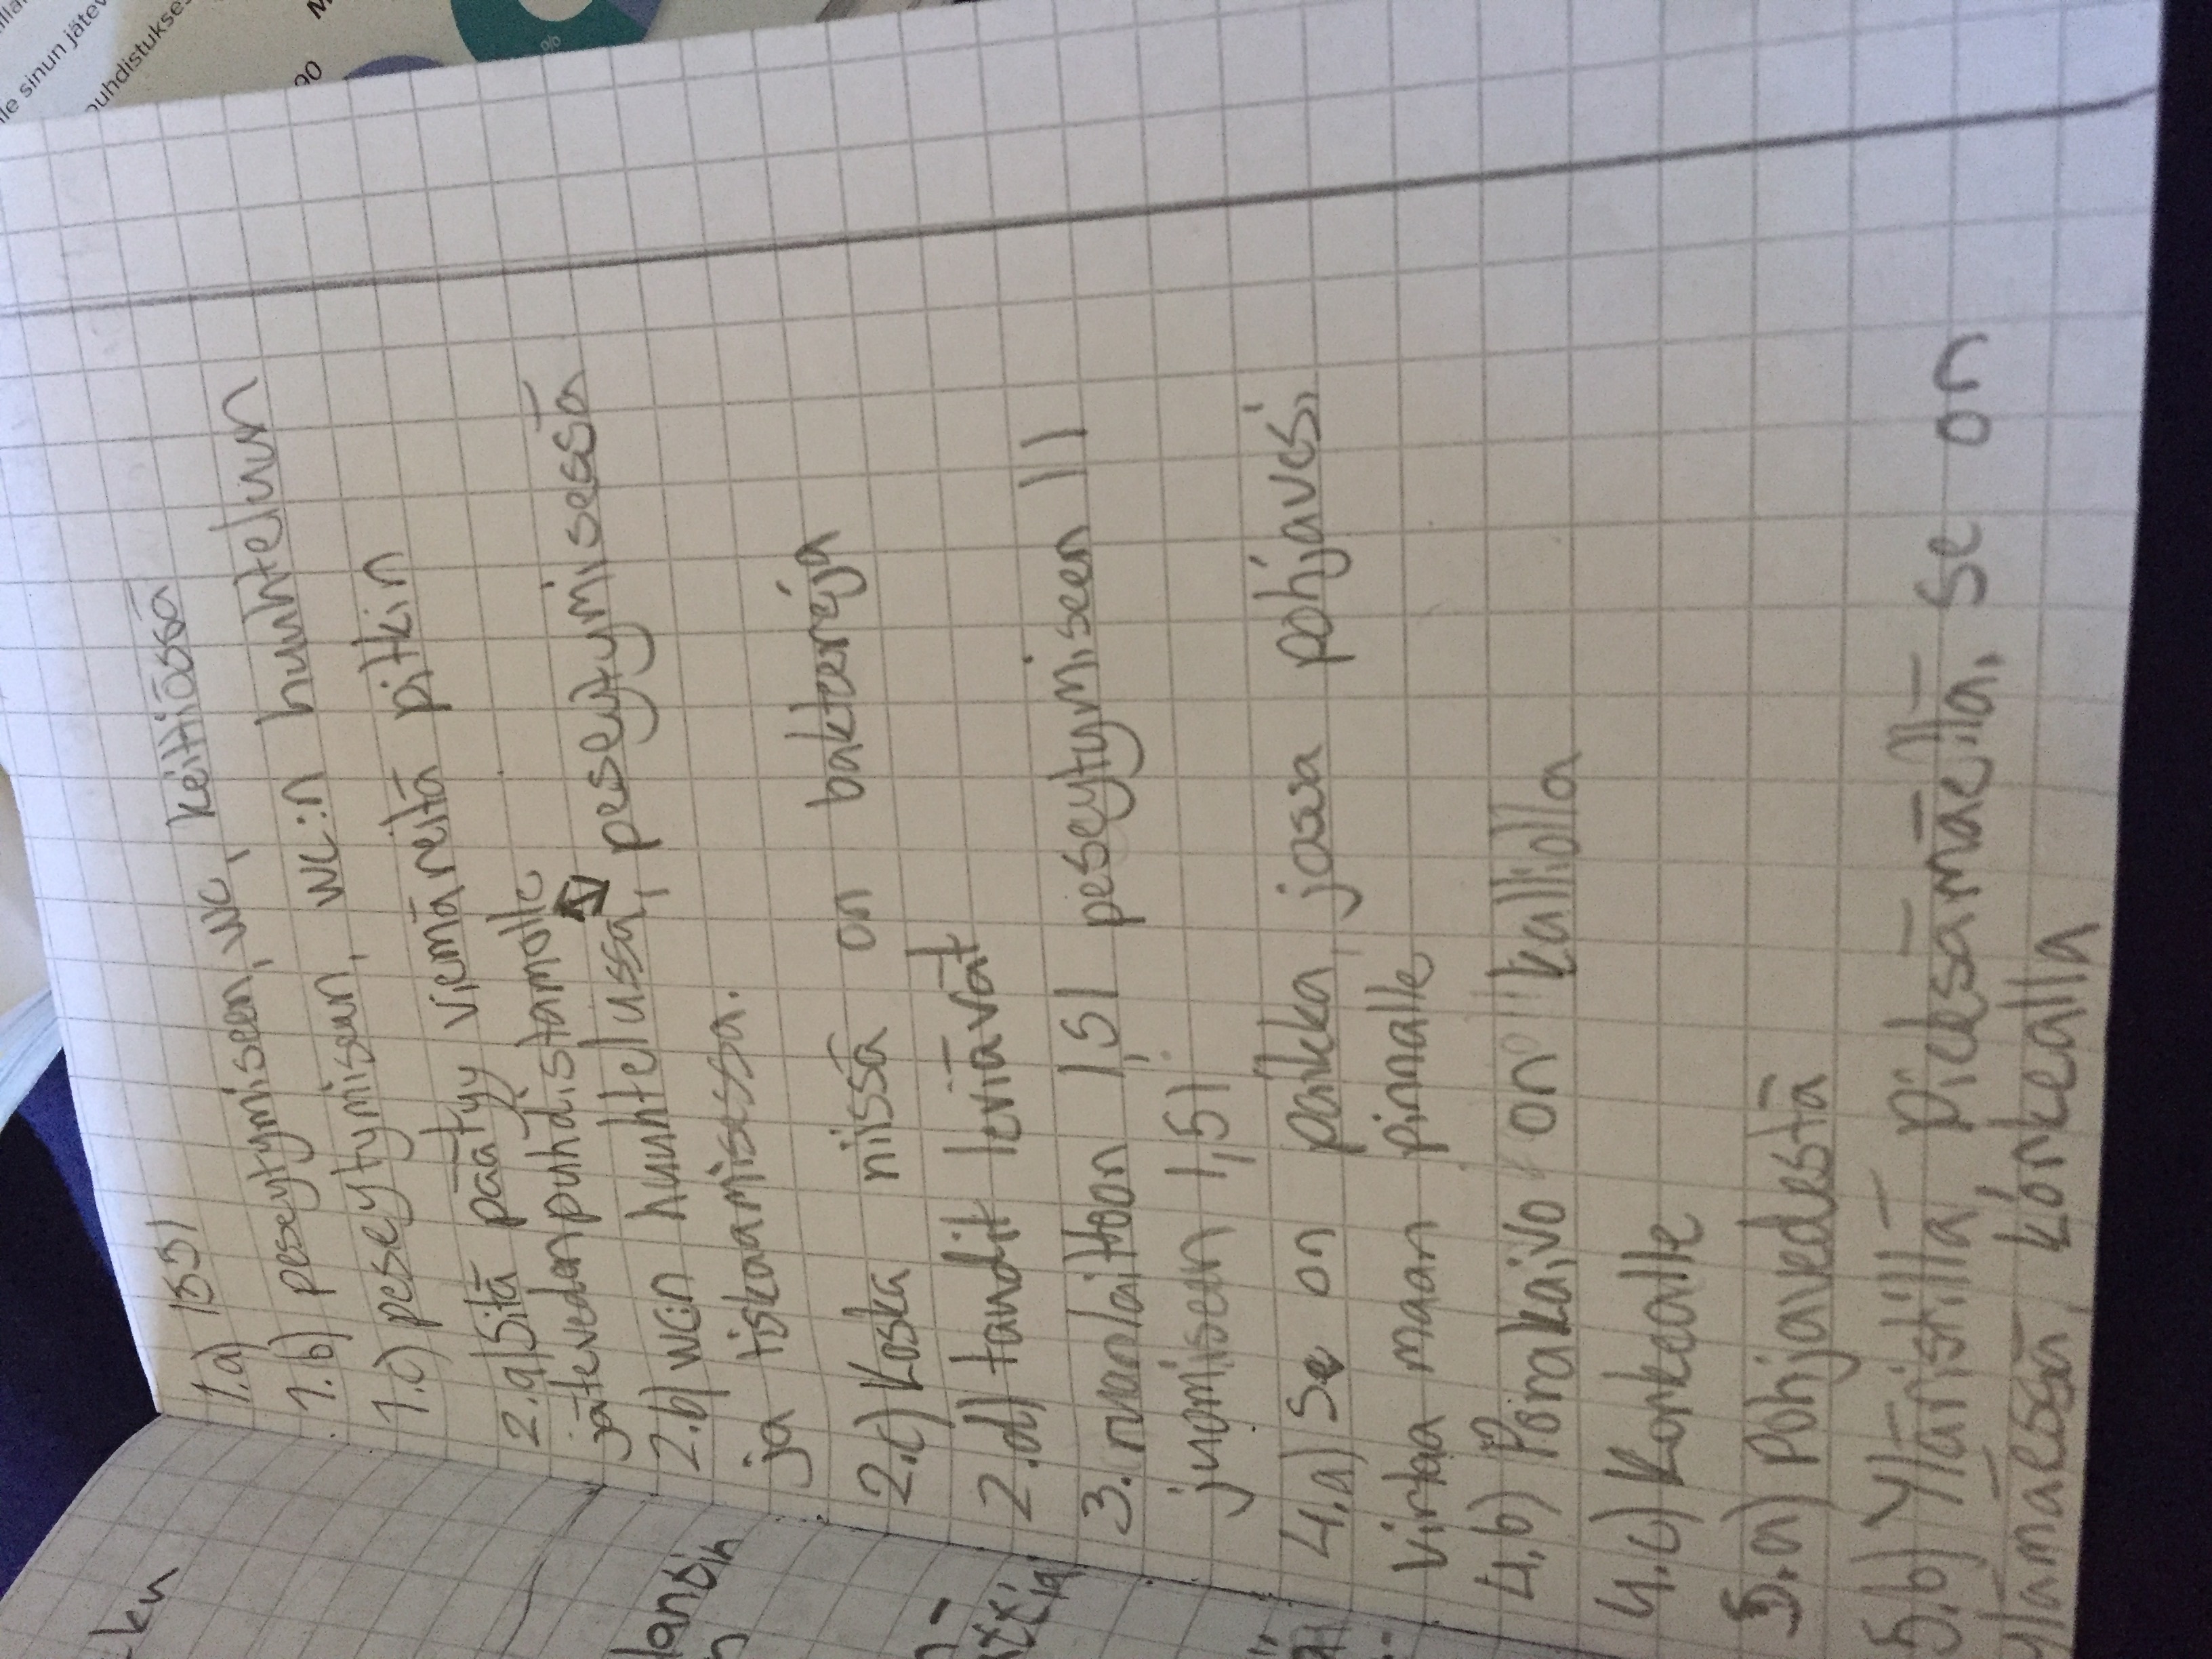 1.a) 155l
1.b) peseytymiseen, wc, keittiössä
1.c) peseytymiseen, wc:n huuhteluun
2.a) Sitä päätyy viemäreitä pitkin
jätevedenpuhdistamolle
2.b) wc:n huuhtelussa, peseytymisessä
ja tiskaamisessa.
2.c) Koska niissä on baktereja
2.d) taudit leviävät
3. ruanlaittoon 1,5l peseytymiseen 1l
juomiseen 1,5l
4.a) Se on paikka, jossa pohjavesi
virtaa maan pinnalle
4.b) Porakaivo on kalliolla
4.c) Korkealle
5.a) Pohjavedestä
5.b) Yläristillä, Pieksämäellä, se on
ylämäessä, korkealla
le sinun
puhdistukses
90
%